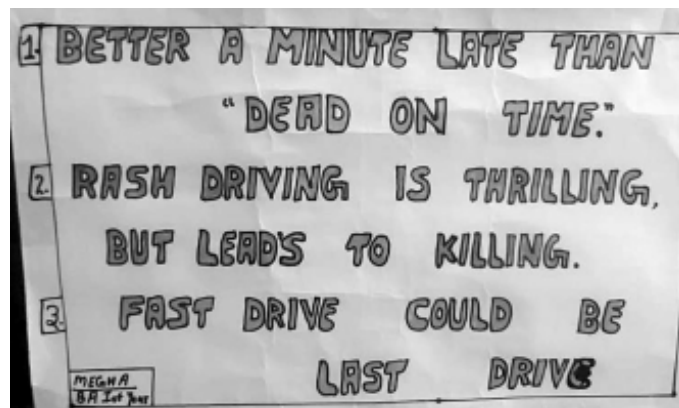 1. BETTER A MINUTE LATE THAN
"DEAD ON TIME."
2. RASH DRIVING IS THRILLING,
BUT LEAD'S TO KILLING.
3. FAST DRIVE COULD BE
LAST DRIVE
MEGHA
BA Ist Year